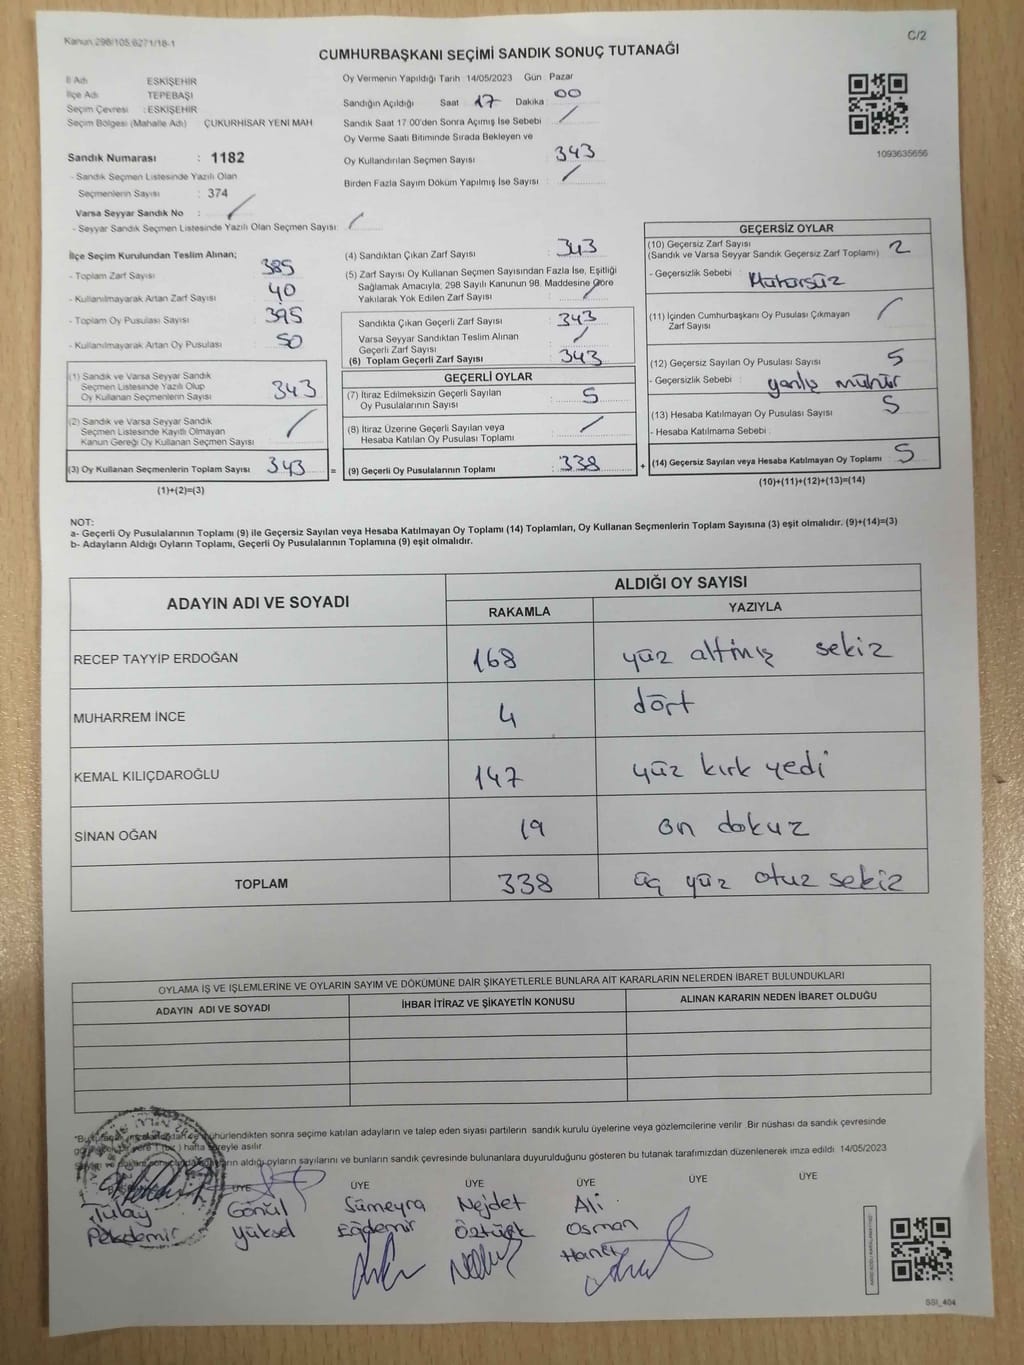 Kanun 298/105,6271/18-1
C/2
CUMHURBAŞKANI SEÇİMİ SANDIK SONUÇ TUTANAĞI
İl Adı ESKİŞEHİR
İlçe Adı TEPEBAŞI
Seçim Çevresi : ESKİŞEHİR
Seçim Bölgesi (Mahalle Adı) ÇUKURHİSAR YENİ MAH
Sandık Numarası : 1182
- Sandık Seçmen Listesinde Yazılı Olan
Seçmenlerin Sayısı : 374
Varsa Seyyar Sandık No : /
- Seyyar Sandık Seçmen Listesinde Yazılı Olan Seçmen Sayısı : /
Oy Vermenin Yapıldığı Tarih 14/05/2023 Gün Pazar
Sandığın Açıldığı Saat 17 Dakika 00
Sandık Saat 17 00'den Sonra Açımış İse Sebebi /
Oy Verme Saati Bitiminde Sırada Bekleyen ve
Oy Kullandırılan Seçmen Sayısı 343
Birden Fazla Sayım Döküm Yapılmış İse Sayısı : /
1093635656
İlçe Seçim Kurulundan Teslim Alınan;
- Toplam Zarf Sayısı 385
- Kullanılmayarak Artan Zarf Sayısı 40
- Toplam Oy Pusulası Sayısı 395
- Kullanılmayarak Artan Oy Pusulası 50
(1) Sandık ve Varsa Seyyar Sandık
Seçmen Listesinde Yazılı Olup
Oy Kullanan Seçmenlerin Sayısı 343
(2) Sandık ve Varsa Seyyar Sandık
Seçmen Listesinde Kayıtlı Olmayan
Kanun Gereği Oy Kullanan Seçmen Sayısı /
(3) Oy Kullanan Seçmenlerin Toplam Sayısı 343 =
(1)+(2)=(3)
(4) Sandıktan Çıkan Zarf Sayısı : 343
(5) Zarf Sayısı Oy Kullanan Seçmen Sayısından Fazla İse, Eşitliği
Sağlamak Amacıyla; 298 Sayılı Kanunun 98. Maddesine Göre
Yakılarak Yok Edilen Zarf Sayısı : /
Sandıkta Çıkan Geçerli Zarf Sayısı : 343
Varsa Seyyar Sandıktan Teslim Alınan
Geçerli Zarf Sayısı : /
(6) Toplam Geçerli Zarf Sayısı 343
GEÇERLİ OYLAR
(7) İtiraz Edilmeksizin Geçerli Sayılan
Oy Pusulalarının Sayısı : 5
(8) İtiraz Üzerine Geçerli Sayılan veya
Hesaba Katılan Oy Pusulası Toplamı : /
(9) Geçerli Oy Pusulalarının Toplamı : 338 +
GEÇERSİZ OYLAR
(10) Geçersiz Zarf Sayısı
(Sandık ve Varsa Seyyar Sandık Geçersiz Zarf Toplamı) 2
- Geçersizlik Sebebi : Mühürsüz
(11) İçinden Cumhurbaşkanı Oy Pusulası Çıkmayan
Zarf Sayısı /
(12) Geçersiz Sayılan Oy Pusulası Sayısı : 5
- Geçersizlik Sebebi : yanlış mühür
(13) Hesaba Katılmayan Oy Pusulası Sayısı : 5
- Hesaba Katılmama Sebebi :
(14) Geçersiz Sayılan veya Hesaba Katılmayan Oy Toplamı : 5
(10)+(11)+(12)+(13)=(14)
NOT:
a- Geçerli Oy Pusulalarının Toplamı (9) ile Geçersiz Sayılan veya Hesaba Katılmayan Oy Toplamı (14) Toplamları, Oy Kullanan Seçmenlerin Toplam Sayısına (3) eşit olmalıdır. (9)+(14)=(3)
b- Adayların Aldığı Oyların Toplamı, Geçerli Oy Pusulalarının Toplamına (9) eşit olmalıdır.
ADAYIN ADI VE SOYADI ALDIĞI OY SAYISI
RAKAMLA YAZIYLA
RECEP TAYYİP ERDOĞAN 168 yüz altmış sekiz
MUHARREM İNCE 4 dört
KEMAL KILIÇDAROĞLU 147 yüz kırk yedi
SİNAN OĞAN 19 on dokuz
TOPLAM 338 üç yüz otuz sekiz
OYLAMA İŞ VE İŞLEMLERİNE VE OYLARIN SAYIM VE DÖKÜMÜNE DAİR ŞİKAYETLERLE BUNLARA AİT KARARLARIN NELERDEN İBARET BULUNDUKLARI
ADAYIN ADI VE SOYADI İHBAR İTİRAZ VE ŞİKAYETİN KONUSU ALINAN KARARIN NEDEN İBARET OLDUĞU
mühürlendikten sonra seçime katılan adayların ve talep eden siyasi partilerin sandık kurulu üyelerine veya gözlemcilerine verilir .Bir nüshası da sandık çevresinde
hafta süreyle asılır
aldığı oyların sayılarını ve bunların sandık çevresinde bulunanlara duyurulduğunu gösteren bu tutanak tarafımızdan düzenlenerek imza edildi 14/05/2023
ÜYE ÜYE ÜYE ÜYE ÜYE ÜYE
Tülay Gönül Sümeyra Nejdet Ali
Pekdemir Yüksel Eğdemir Öztürk Osman
SSI_404